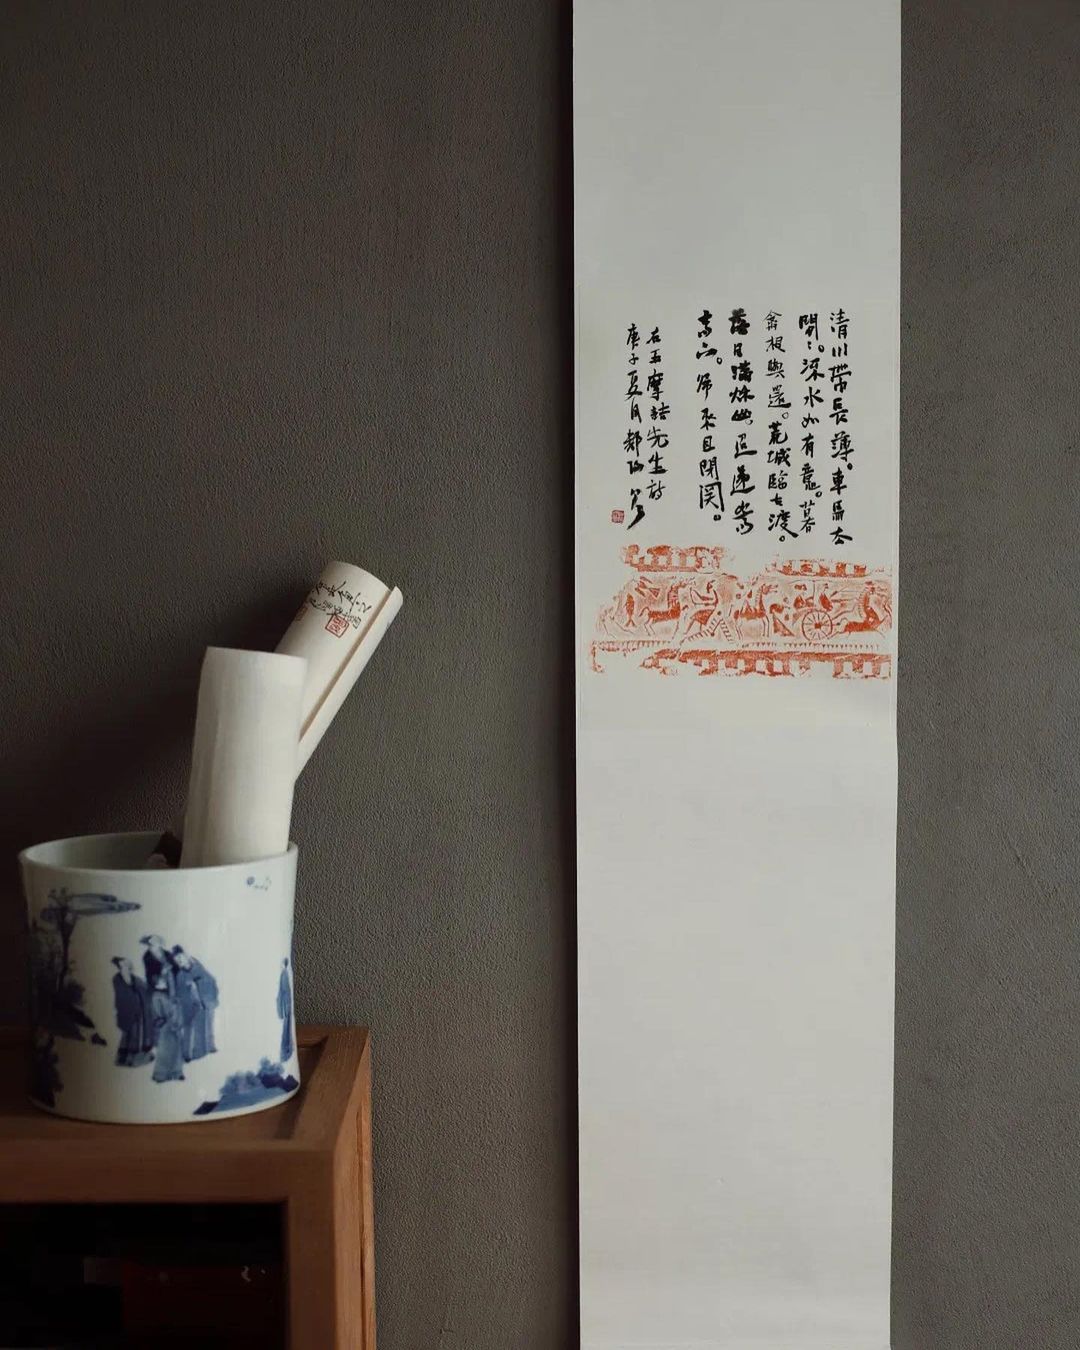 清川帶長薄。車馬去
閒〻。流水如有意。暮
禽相與還。荒城臨古渡。
落日滿秌山。迢遞嵩
高下。歸來且閉関。
右王摩詰先生詩
庚子夏月